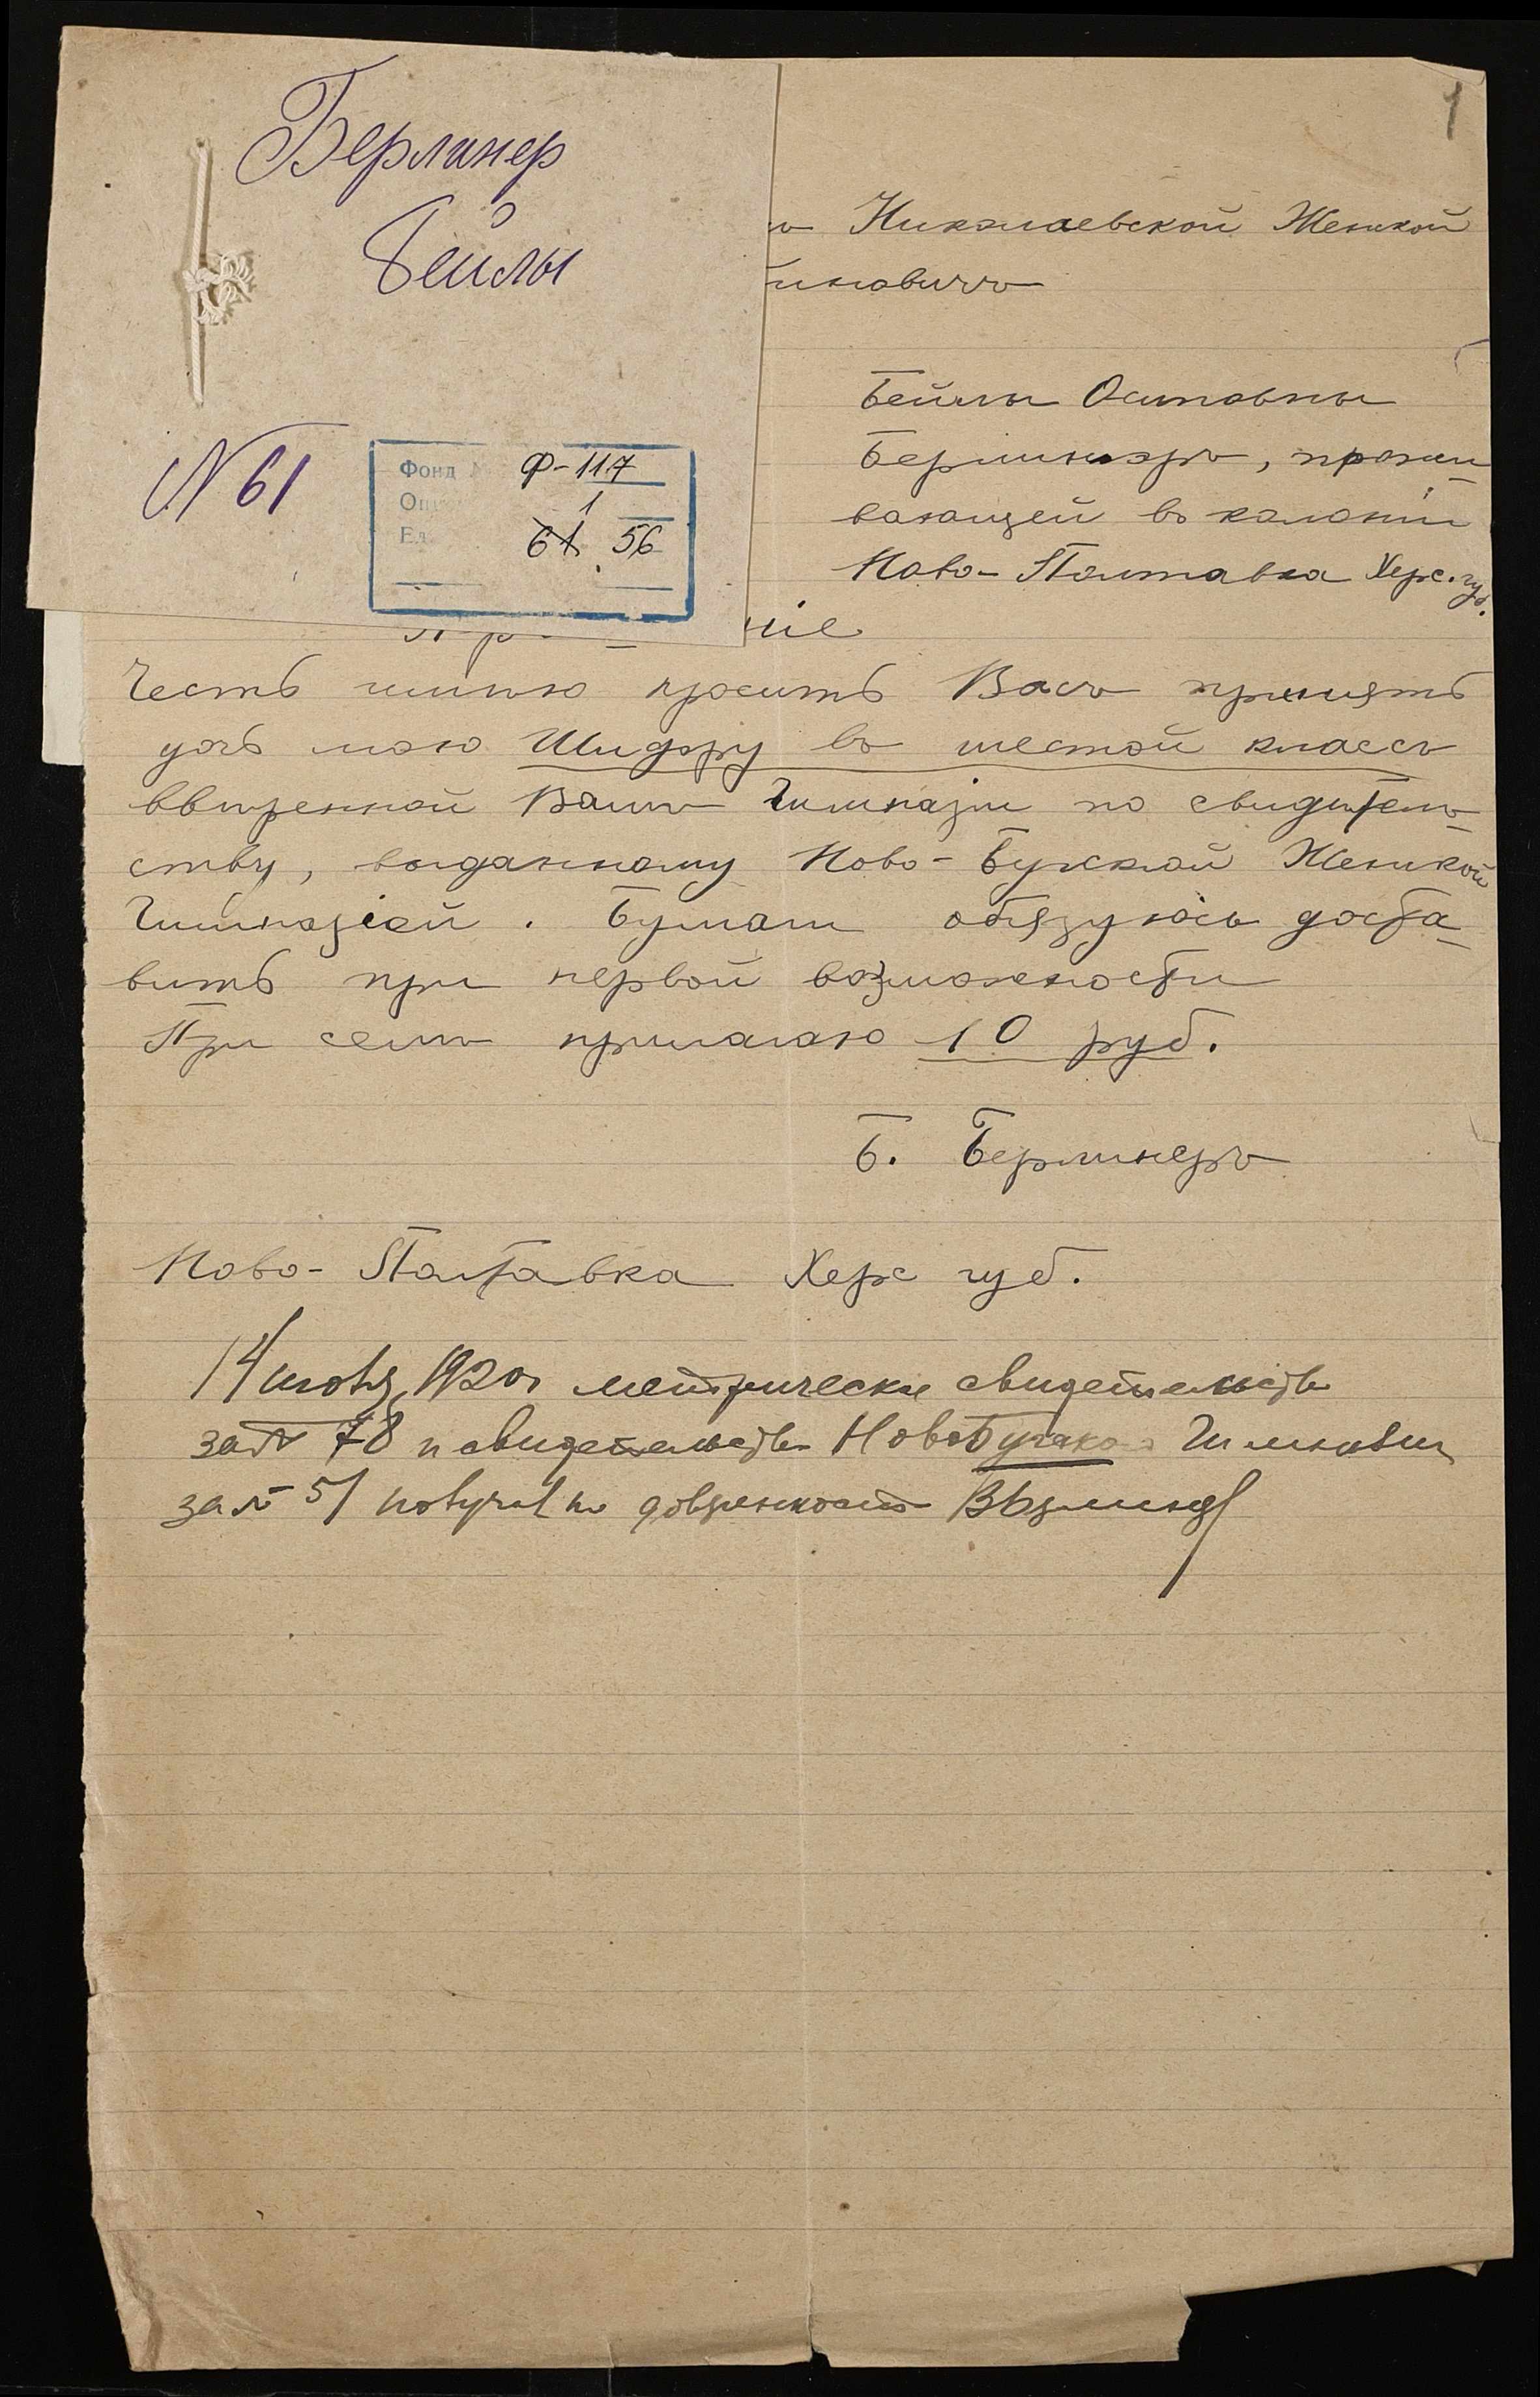 Берлинер
Бейлы
N 61
Фонд № Ф-117
Оп. 1
Ед. 61 56
1
ъ Николаевской Женской
иновичъ
Бейлы Осиповны
Берлинэръ, прожи-
вающей въ колонiи
Ново-Полтавка Херс. губ.
нiе
Честь имѣю просить Васъ принять
дочь мою Шифру въ шестой классъ
ввѣренной Вами Гимназiи по свидѣтель-
ству, выданному Ново-Бугской Женской
Гимназiей. Бумаги обязуюсь доста-
вить при первой возможности
При семъ прилагаю 10 руб.
Б. Берлинеръ
Ново-Полтавка Херс губ.
14 июля 1920г метрическое свидетельство
за № 78 и свидетельство НовоБугской Гимназии
за № 51 получил по доверенности